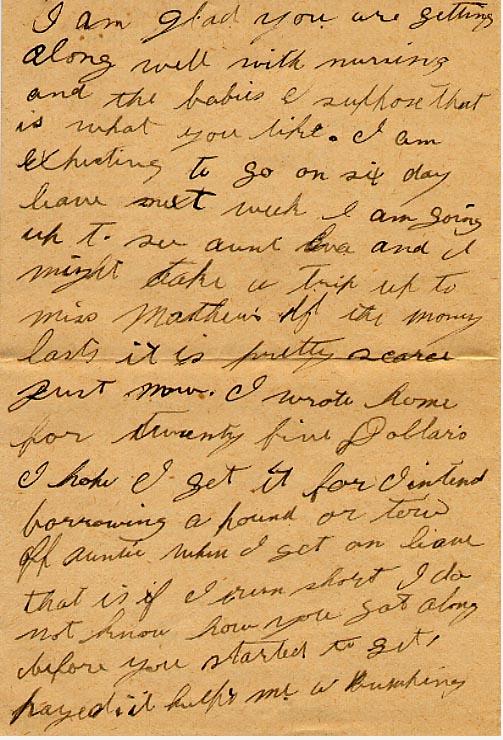 I am glad you are getting
along well with nursing
and the babies I suppose that
is what you like. I am
expecting to go on six day
leave next week I am going
up to see aunt Eva and I
might take a trip up to
miss Matthews if the money
lasts it is pretty scarce
just now. I wrote home
for twenty five Dollars
I hope I get it for I intend
borrowing a pound or tow
off auntie when I get on leave
that is if I run short I do
not know how you got along
before you started to get
payed it helps me a